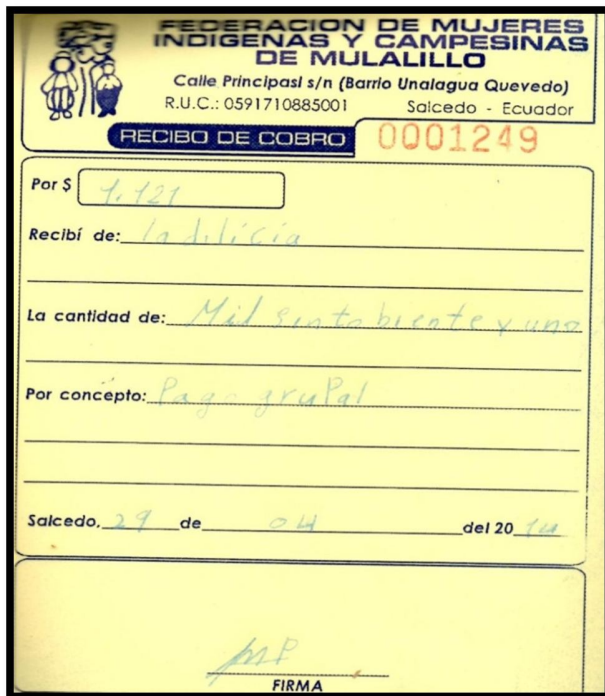 FEDERACION DE MUJERES
INDIGENAS Y CAMPESINAS
DE MULALILLO
Calle Principasl s/n (Barrio Unalagua Quevedo)
R.U.C.: 0591710885001 Salcedo - Ecuador
RECIBO DE COBRO 0001249
Por $ 1.121
Recibí de: la dilicia
La cantidad de: Mil sento biente y uno
Por concepto: Pago gruPal
Salcedo, 29 de 04 del 20 14
MP
FIRMA